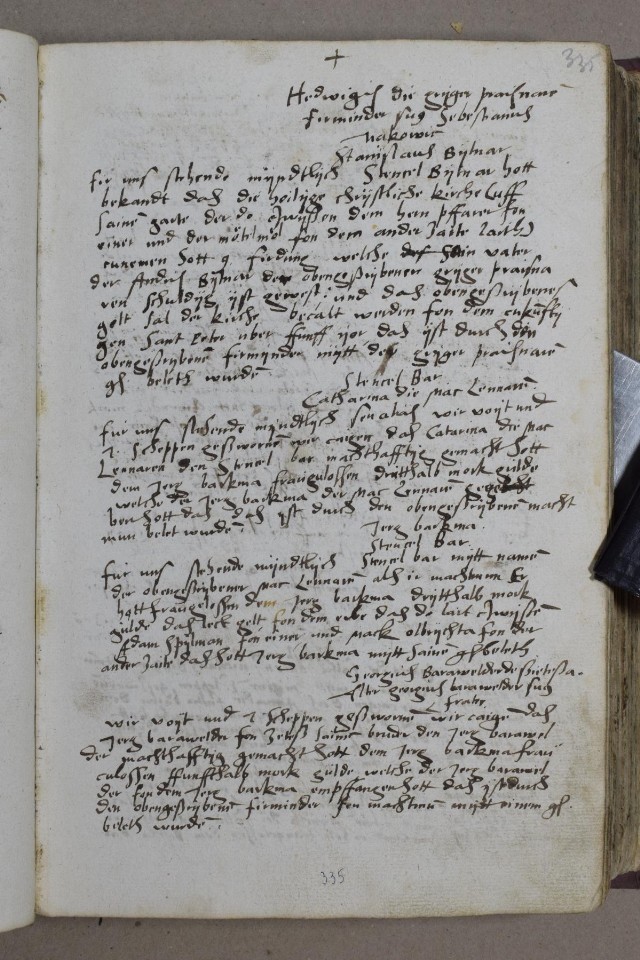 +
335
Hedwigis die gryger prasnare
firmінder sug Sebestianus
Makowic
Stanislaus Bytnar
fir uns stehende myndtlich Stencel Bytnar hott
bekandt das die heilige christliche kirche uff
saine garte der do czwyssen dem hern pffarer fon
einer und der fon dem ander saite
hott 9 firdung welche sein vater
der Andris Bytnar der obengeschrybener gryger prasna
ren schuldig yst gewest: und das obengeschrybenes
gelt sal der kirche becalt werden fon dem cukunfty
gen Sant peter uber funff jor das yst durch den
obengeschrybene firmynder mytt der gryger prasnare
gl beleth wurde
Stencel Bar
Catharina die Mac Lennare
fur uns stehende myndtlich wir voyt und
7 scheppen geschworne wir caigen das Catarina die Mac
Lennaren den Stencel bar machthafftig gemacht hott
dem Jerg barkma fraygulossen drytthalb mork gulde
welche der Jerg barkma der Mac Lennare
hott das das yst durch den obengeschrybene macht
man belet wurde:
Jerg barkma.
Stencel Bar.
fur uns stehende myndtlich Stencel bar mytt name
der obengeschrybener Mac Lennare als ir machtman Er
hott fraygelossen dem Jerg barkma drytthalb mork
gulde das leck gelt fon dem erbe das do lait czwyssen
Adam Spylman fon einer und Mack olbrychta fon der
ander saite das hott Jerg barkma mytt saine gl beleth
Georgius Barawelder de
Alter georgius barawelder sug
frater
wir voyt und 7 scheppen geschworne wir caige das
Jerg barawelder fon saine bruder den Jerg barawel
der machthafftig gemacht hott dem Jerg barkma fray
culossen funffthalb mork gulde welche der Jerg barawel
der fon dem Jerg barkma empffangen hott das yst durch
den obengeschrybene firminder fon machtman mytt einem gl.
beleth wurde:
335